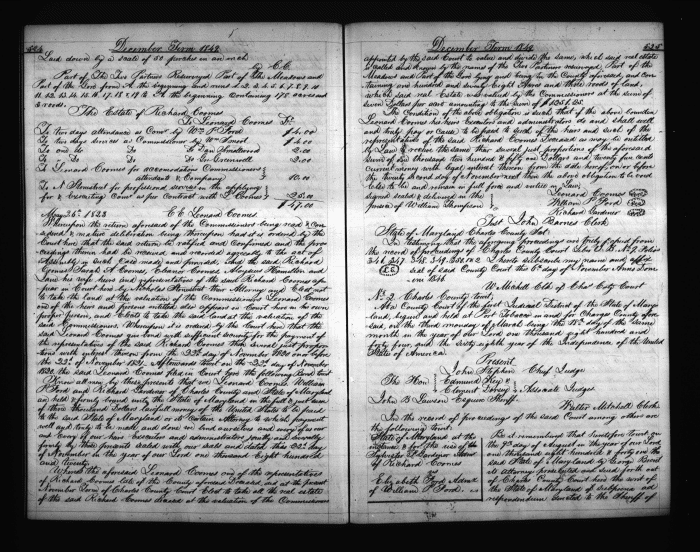 524
December Term 1849
Laid down by a scale of 50 perches in an inch
by C. C.
Part of The Two Partners Resurveyed Part of The Meadows and
Part of the Lord from A the beginning and runs 1. 2. 3. 4. 5. 6. 7. 8. 9. 10
11. 12. 13. 14. 15. 16. 17. 18. 19. to A the beginning Containing 178 acres and
3 roods.
The Estate of Richard Coomes
To Leonard Coomes Dr.
To two days attendance as Comr by Wm P Ford $4.00
To two days services as Commissioner by Wm $4.00
To Do Do Do 2.00
To Do Do Do Geo 2.00
To Leonard Coomes for accomodating Commissioners
attendants & Company 10.00
To N Stonestreet for professional services in the applying
for & executing Court as per Contract with L Coomes 25.00
$47.00
May 26th 1823 C C Leonard Coomes
Whereupon the return aforesaid of the Commissioners being read &
and mature deliberation being thereupon had it is ordered by the
Court here that the said return be ratified and Confirmed and the
proceedings therein had be recorded and agreeably to the act of
Assembly in such Case made and provided, and the said Richard
Coomes Sarah A Coomes, Eleanor Coomes Aloysius Hamilton and
his wife heirs and representatives of the said Richard Coomes
appear in Court here by Nicholas Stonestreet their Attorney and Elect not
to take the land at the valuation of the Commissioners Leonard Coomes
one of the heirs and persons entitled also appears in Court here in his own
proper person, and Elects to take the said land at the valuation of the
said Commissioners Whereupon it is ordered by the Court here that the
said Leonard Coomes give bond with sufficient security for the payment of
the representatives of the said Richard Coomes their several just proportions
with interest thereon from the 22nd day of November 1820 on or before
the 22nd of November 1821. Afterwards to wit on the 22nd day of November
1820 the said Leonard Coomes filed in Court here the following Bond to wit
Know all men by these presents that we Leonard Coomes William
P Ford and Richard Gardiner of Charles County and State of Maryland
are held & firmly bound unto the State of Maryland in the full & just sum
of three thousand dollars lawful money of the United States to be paid
to the said State of Maryland or its Certain Attorney to which payment
well and truly to be made and done we bind ourselves and every of us our
and every of our heirs Executors and administrators jointly and severally
firmly by these presents sealed with our seals and dated this 22nd day
of November in the year of our Lord one thousand Eight hundred
and Twenty
Whereas the aforesaid Leonard Coomes one of the representatives
of Richard Coomes late of the County aforesaid Deceased, has at the present
November Term of Charles County Court Elected to take all the real estate
of the said Richard Coomes deceased at the valuation of the Commissioners
December Term 1849
525
appointed by the said Court to value and divide the same, which said real estate
is called and known by the names of The Two Partners resurveyed Part of the
Meadows and Part of the Lord lying and being in the County aforesaid, and
containing one hundred and seventy Eight Acres and three roods of land.
which said Real Estate was valued by the Commissioners at the sum of
seven Dollars per acre amounting to the sum of $1251.25.
The Condition of the above obligation is such, that if the above bounden
Leonard Coomes his heirs Executors and administrators do and shall well
and truly pay or Cause to be paid to each of the heirs and each of the
representatives of the said Richard Coomes Deceased as may be entitled
by Law to receive the same their several just proportions of the aforesaid
sum of one thousand two hundred & fifty one Dollars and twenty five cents
current money with legal interest thereon from the date hereof, on or before
the twenty second day of November next then the above obligation to be void
Else to be and remain in full force and virtue in Law.
signed sealed & delivered in the
presence of William Thompson
Leonard Coomes (seal)
William P Ford (seal)
Richard Gardiner (seal)
Test John Barnes Clerk
State of Maryland Charles County Sct.
In Testimony that the foregoing proceedings were truly Copied from
the record of proceedings of Charles County Court Liber I B No 17 folios
346. 347. 348. 349. 350 & 2 I hereto subscribe my name and affix
(L S) seal of said County Court this 6th day of November Anno Domini
1846
W Mitchell Clk of Chas Cnty Court
No 2 Charles County Court
At a County Court of the first Judicial District of the State of
Maryland, begun and held at Port Tobacco in and for Charles County
aforesaid, on the third monday of March being the 18th day of the same
month in the year of our Lord one thousand eight hundred and
forty four, and the sixty eighth year of the Independence of the United
States of America.
Present
The Hon John Stephen Chief Judge
Edmund Key &
Clement Dorsey Associate Judges
John B Lawson Esquire Sheriff
Walter Mitchell Clerk
In the record of proceedings of the said Court among others are
the following to wit
State of Maryland at the
instance & for the use of
Sylvester F Gardiner Admr
of Richard Coomes
vs
Elizabeth Ford Admx
of William P Ford.
Be it remembered that heretofore to wit on
the 7th day of August in the year of our Lord
one thousand eight hundred & forty one the
said State of Maryland by George Brent
its attorney in this behalf sued forth out
of Charles County Court here the writ of
the State of Maryland of subpoena ad
respondendum directed to the Sheriff of